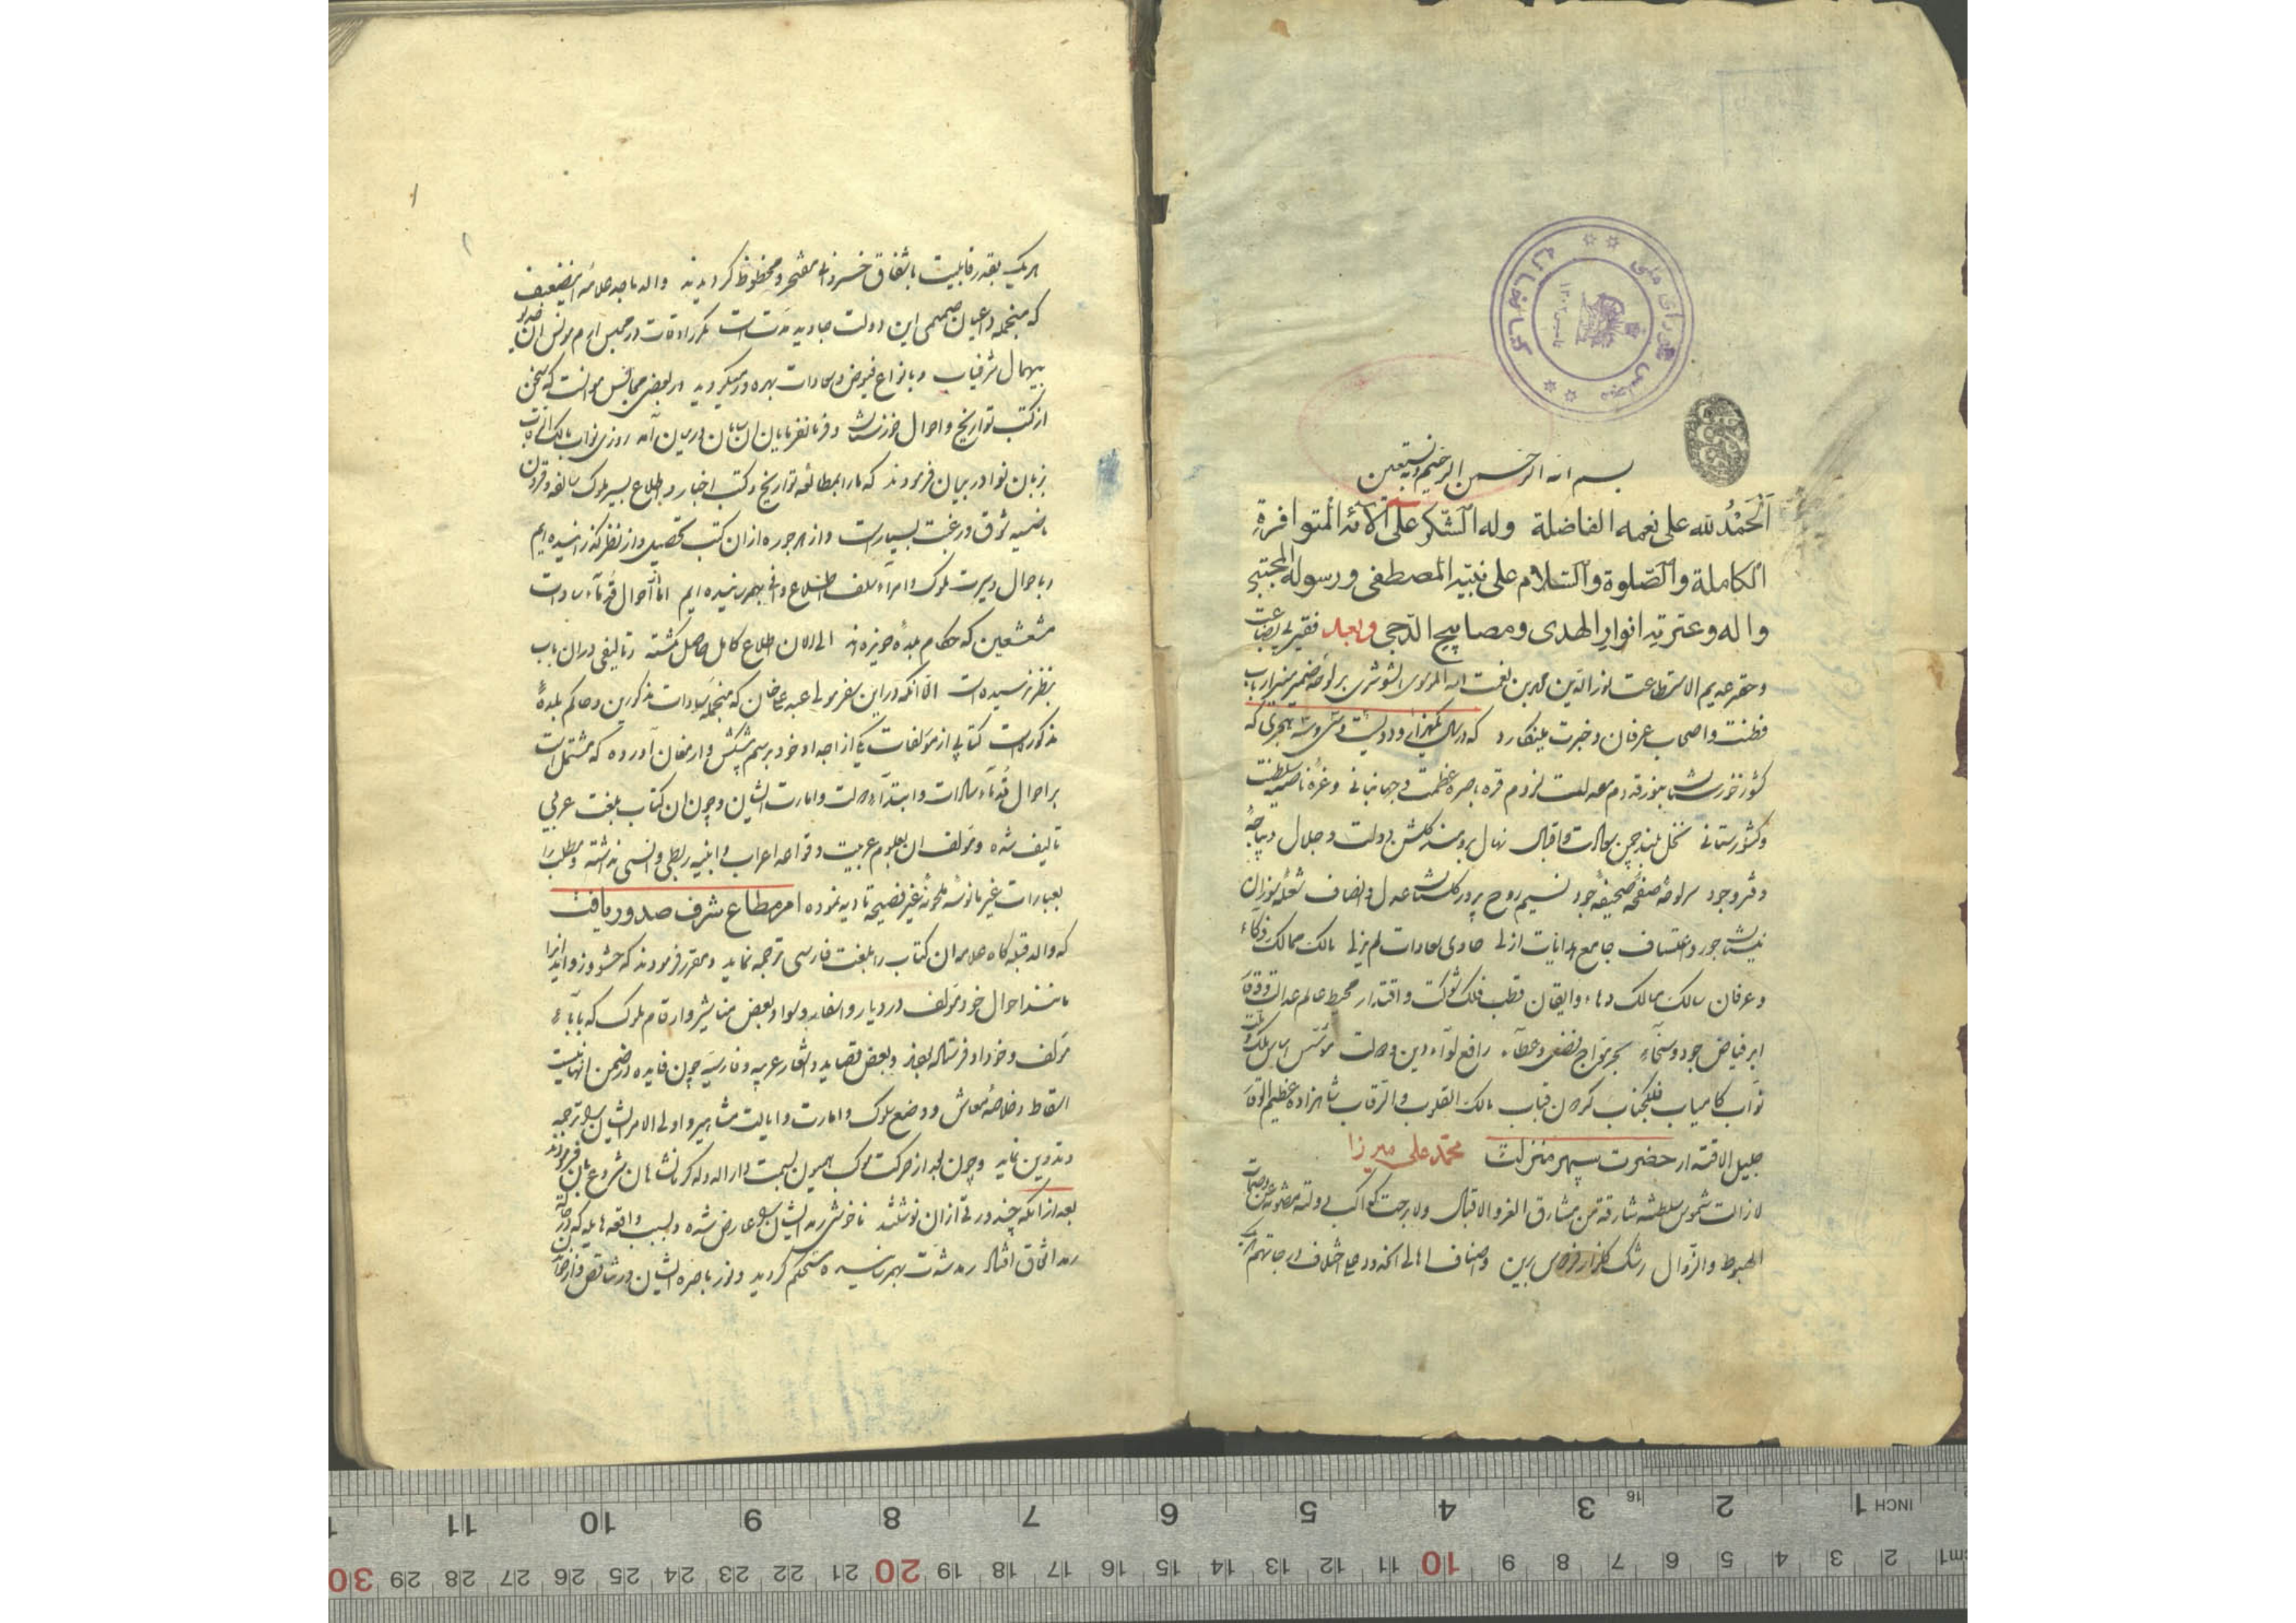 کتابخانه
مجلس شورای ملی
بسم الله الرحمن الرحیم و به نستعین
اَلْحَمْدُ لله علی نعمه الفاضلة وله الشکر علی آلائه المتوافرة
الکاملة والصّلوة والسّلام علی نبیّه المصطفی ورسوله المجتبی
واله وعترته انوار الهدی ومصابیح الدّجی وبعد فقیر بی بضاعت
وحقیر عدیم الاستطاعت نورالدین محمد بن نعمت الله الموسوی الشوشتری بر لوحه ضمیر منیر ارباب
فطنت واصحاب عرفان وخبرت مینکارد که در سال یکهزار و دویست و سی و سه هجری که
کشور خوزستان بنور قدوم معدلت لزوم قره باصره عظمت وجهانبانی وغره ناصیه سلطنت
وکشورستانی نخل بلند چمن سعادت واقبال نهال برومند کلشن دولت وجلال دیباجه
دفتر وجود سرلوحه صفحه صحیفه جود نسیم روح پرور کلستان عدل وانصاف شعله سوزان
نیستان جور واعتساف جامع هدایات ازلی حاوی سعادات لم یزلی مالک ممالک ذکاء
وعرفان سالک مسالک دهاء وایقان قطب فلک شوکت واقتدار محیط عالم عدالت ووقار
ابر فیاض جود وسخآء بحر مواج فضل وعطآء رافع لوآء دین ودولت مؤسس اساس ملک وملت
نواب کامیاب فلکجناب کردون قباب مالک القلوب والرقاب شاهزاده عظیم الوقار
جلیل الاقتدار حضرت سپهر منزلت محمد علی میرزا
لازالت شموس سلطنته شارقة من مشارق العز والاقبال ولابرحت کواکب دولته مصونة عن وصمات
الهبوط والزوال رشک کلزار فردوس برین واصناف اهالی انحدود علی اختلاف درجاتهم
هریک بقدر قابلیت باشفاق خسروانه مفتخر ومحظوظ کردیدند والد ماجد علامه اینضعیف
که منجمله داعیان صمیمی این دولت جاوید مدت است مکرر اوقات در مجلس ارم مونس ان خدیو
بیهمال شرفیاب وبانواع فیوض وسعادات بهره ور میکردید در بعضی مجالس موانست که سخن
از کتب تواریخ واحوال خوزستان وفرمانفرمایان ان سامان درمیان آمد روزی نواب مالک الرقاب
بزبان نوادر بیان فرمودند که ما را بمطالعه تواریخ وکتب اخبار واطلاع بسیر ملوک سالفه وقرون
ماضیه شوق ورغبت بسیار است واز هر جوره ازان کتب تحصیل واز نظر کذرانیده ایم
وباحوال وسیرت ملوک وامرآء سلف اطلاع وافی بهم رسانیده ایم اما از احوال قدمآء سادات
مشعشعین که حکام بلده حویزه اند الی الان اطلاع کامل حاصل نکشته وتالیفی دران باب
بنظر نرسیده است الا انکه در این سفر مولی عبدعلیخان که منجمله سادات مذکورین وحاکم بلده
مذکوره است کتابی از مؤلفات یکی از اجداد خود برسم پیشکش وارمغان آورده که مشتمل است
بر احوال قدمآء سادات وابتدآء دولت وامارت ایشان وچون ان کتاب بلغت عربی
تالیف شده ومؤلف ان بعلوم عربیت وقواعد اعراب وابنیه ربطی وانسی نداشته ومطلب را
بعبارات غیر مانوسه ملحونه غیر فصیحه تادیه نموده امر مطاع شرف صدور یافت
که والد قبله کاه علامه ان کتاب را بلغت فارسی ترجمه نماید ومقرر فرمودند که حشو وزواید انرا
مانند احوال خود مؤلف در دیار واسفار وسواد بعض مناشیر وارقام ملوک که بآباء
مؤلف وخود او فرستاده بودند وبعض قصاید واشعار عربیه وفارسیه چون فایده در ضمن انها نیست
اسقاط وخلاصه معاش ووضع سلوک وامارت وایالت مشاهیر واولی الامر ایشان را ترجمه
وتدوین نماید وچون بعد از حرکت موکب همیون بسمت دارالدوله کرمانشاهان شروع بان فرمودند
بعد از انکه چند ورقی ازان نوشتند ناخوشی رمد ایشان را عارض شده وبسبب واقعه هایله
رمد اشتداد بهمرسانیده مستحکم کردید ونور باصره ایشان در تناقص